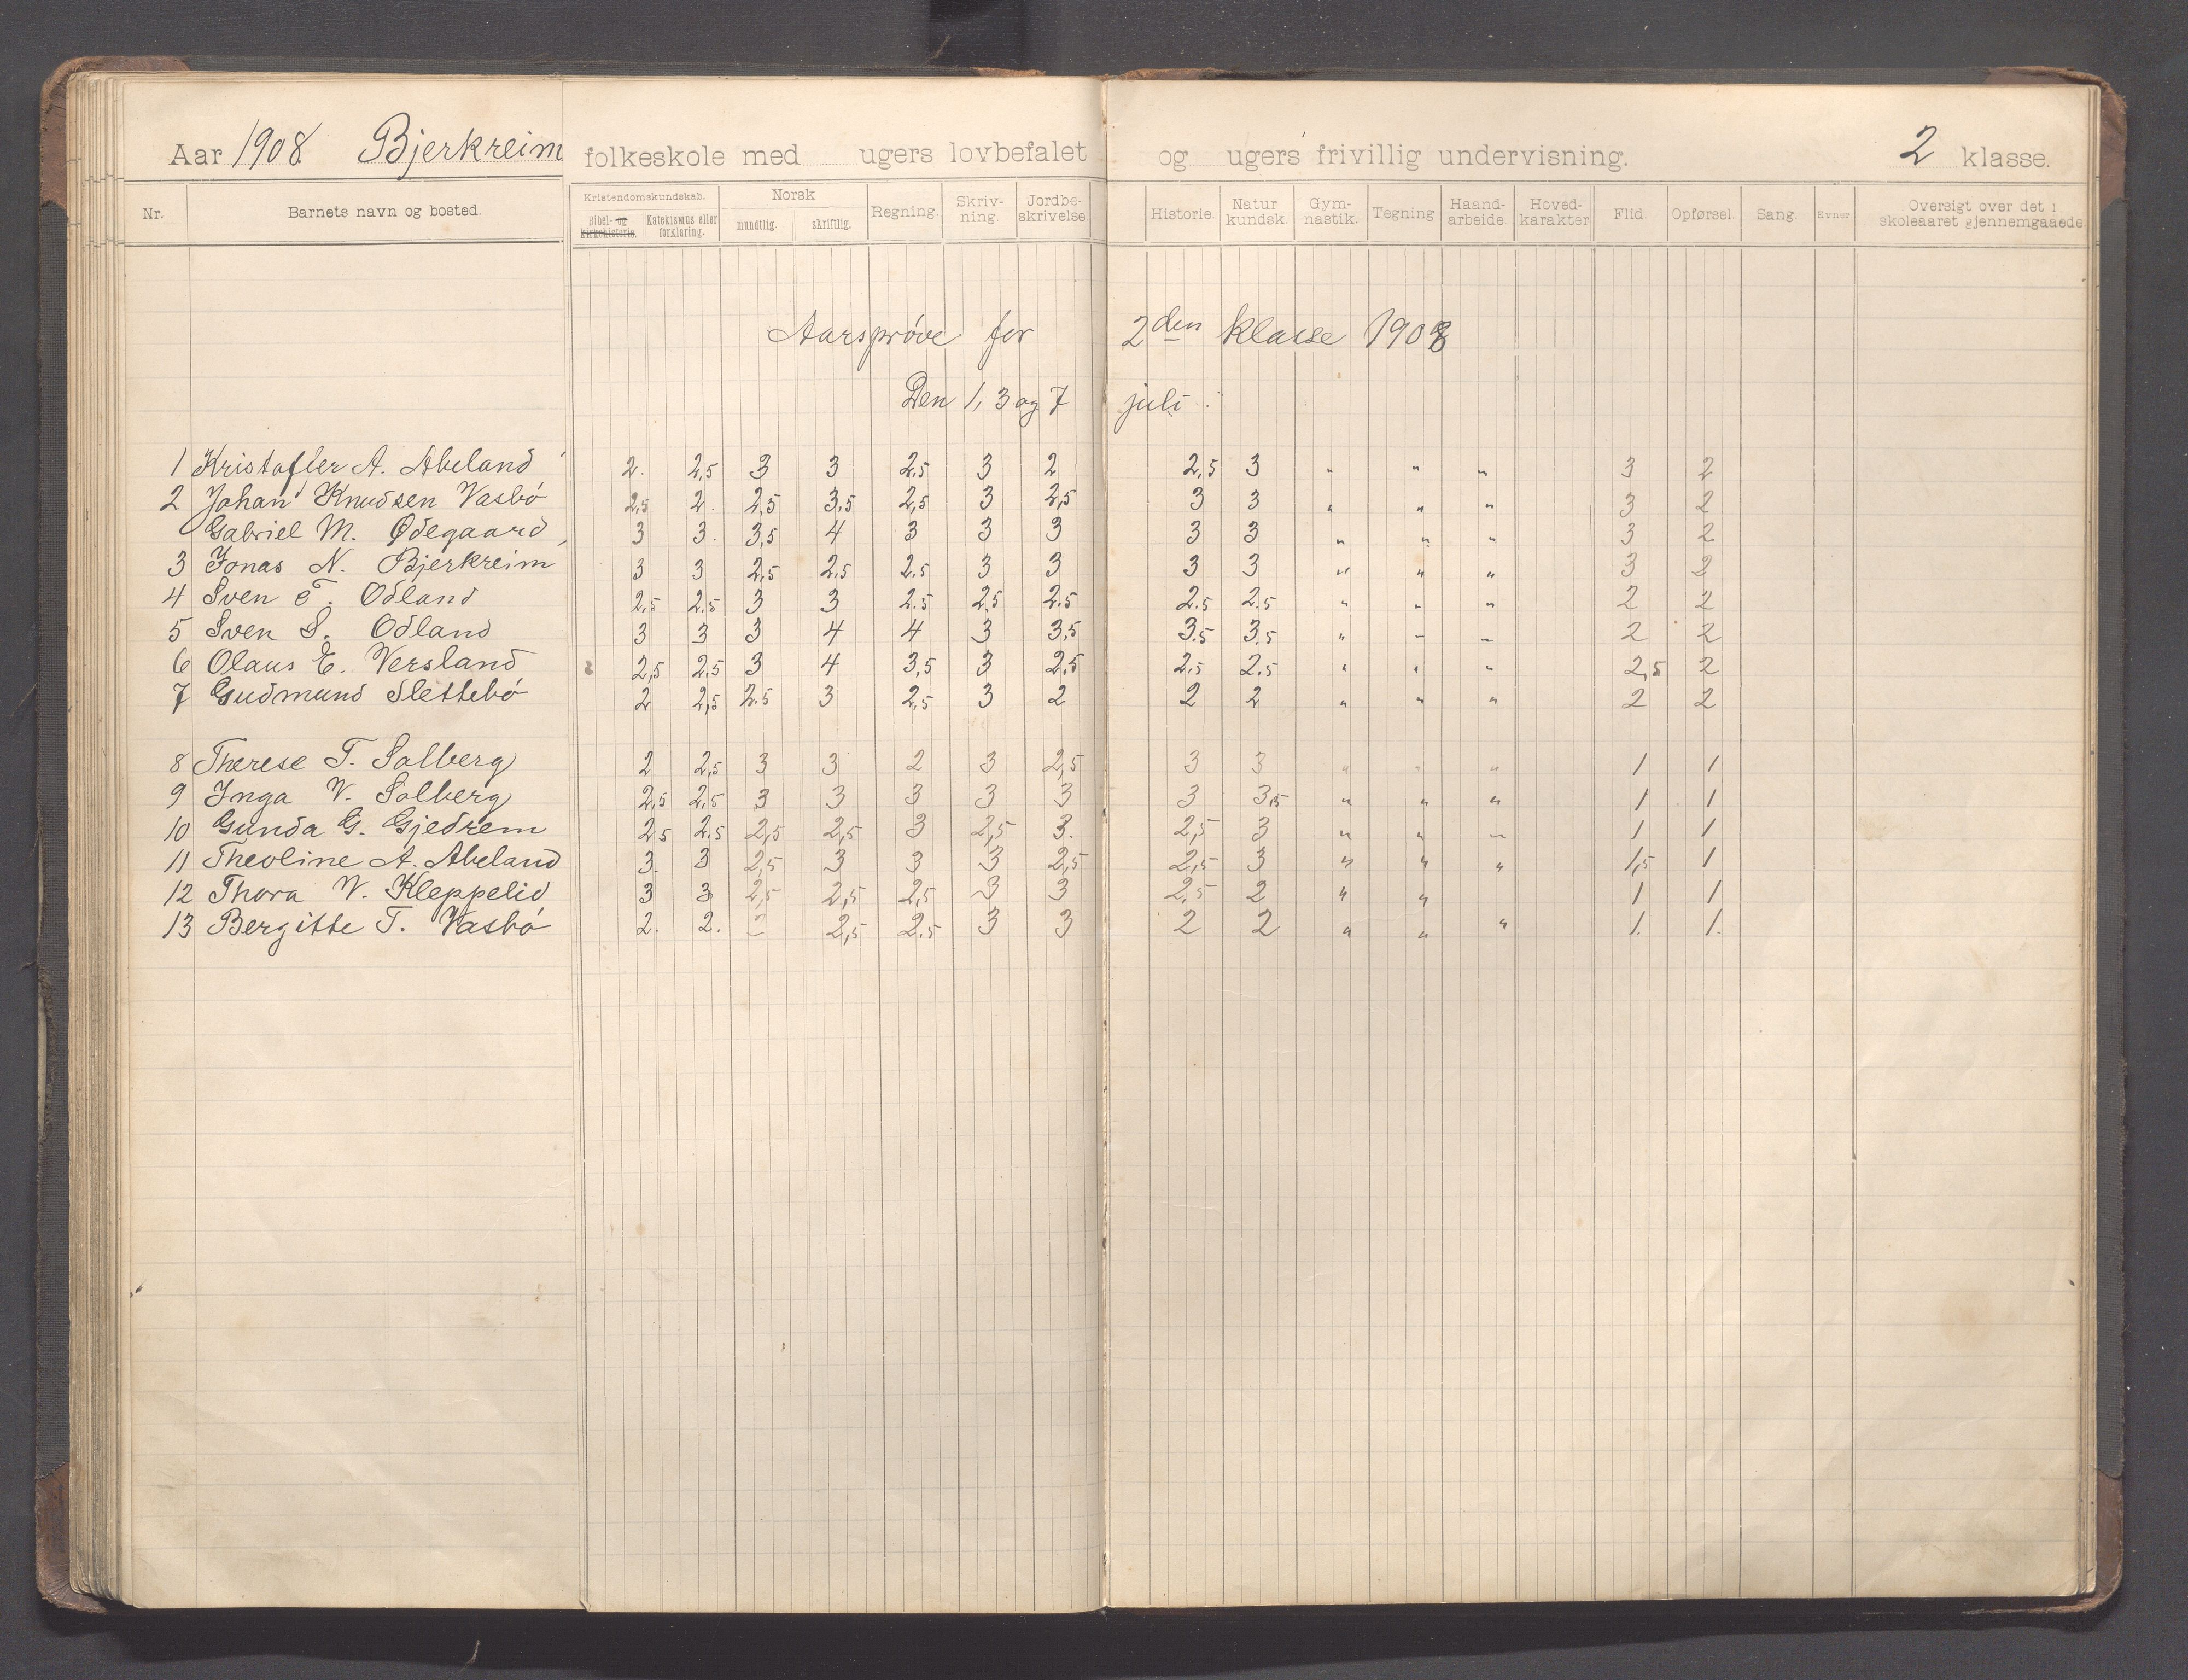 Aar 1908 Bjerkreim folkeskole med ugers lovbefalet og ugers frivillig undervisning. 2 klasse.
Nr. Barnets navn og bosted. Kristendomskundskab. Bibel- og kirkehistorie. Katekismus eller forklaring. Norsk mundtlig. skriftlig. Regning. Skriv-ning. Jordbe-skrivelse. Historie. Natur kundsk. Gym-nastik. Tegning Haand-arbeide. Hoved-karakter Flid. Opførsel. Sang. Evner Oversigt over det i skoleaaret gjennemgaaede
Aarsprøve for 2den klasse 1908
Den 1, 3 og 7 juli.
1 Kristoffer A. Abeland 2. 2,5 3 3 2,5 3 2 2,5 3 " " " 3 2
2 Johan Knudsen Vasbø 2,5 2. 2,5 3,5 2,5 3 2,5 3 3 " " " 3 2
Gabriel M. Ødegaard 3 3. 3,5 4 3 3 3 3 3 " " " 3 2
3 Jonas N. Bjerkreim 3 3 2,5 2,5 2,5 3 3 3 3 " " " 3 2
4 Sven T. Odland 2,5 2,5 3 3 2.5 2,5 2.5 2.5 2.5 " " " 2 2
5 Sven S. Odland 3 3 3 4 4 3 3,5 3.5 3,5 " " " 2 2
6 Olaus E. Versland 2,5 2,5 3 4 3,5 3 2,5 2.5 2.5 " " " 2,5 2
7 Gudmund Slettebø 2 2,5 2.5 3 2,5 3 2 2 2 " " " 2 2
8 Therese T. Solberg 2 2,5 3 3 2 3 2,5 3 3 " " " 1 1
9 Inga V. Solberg 2,5 2,5 3 3 3 3 3 3 3,5 " " " 1 1
10 Gunda G. Gjedrem 2.5 2.5 2,5 2,5 3 2,5 3. 2,5 3 " " " 1 1
11 Theoline A. Abeland 3. 3 2,5 3 3 3 2,5 2,5 3 " " " 1,5 1
12 Thora V. Kleppelid 3 3 2,5 2,5 2,5 3 3 2,5 2 " " 1 1
13 Bergitte T. Vasbø 2. 2. 2 2,5 2.5 3 3 2 2 " " " 1. 1.